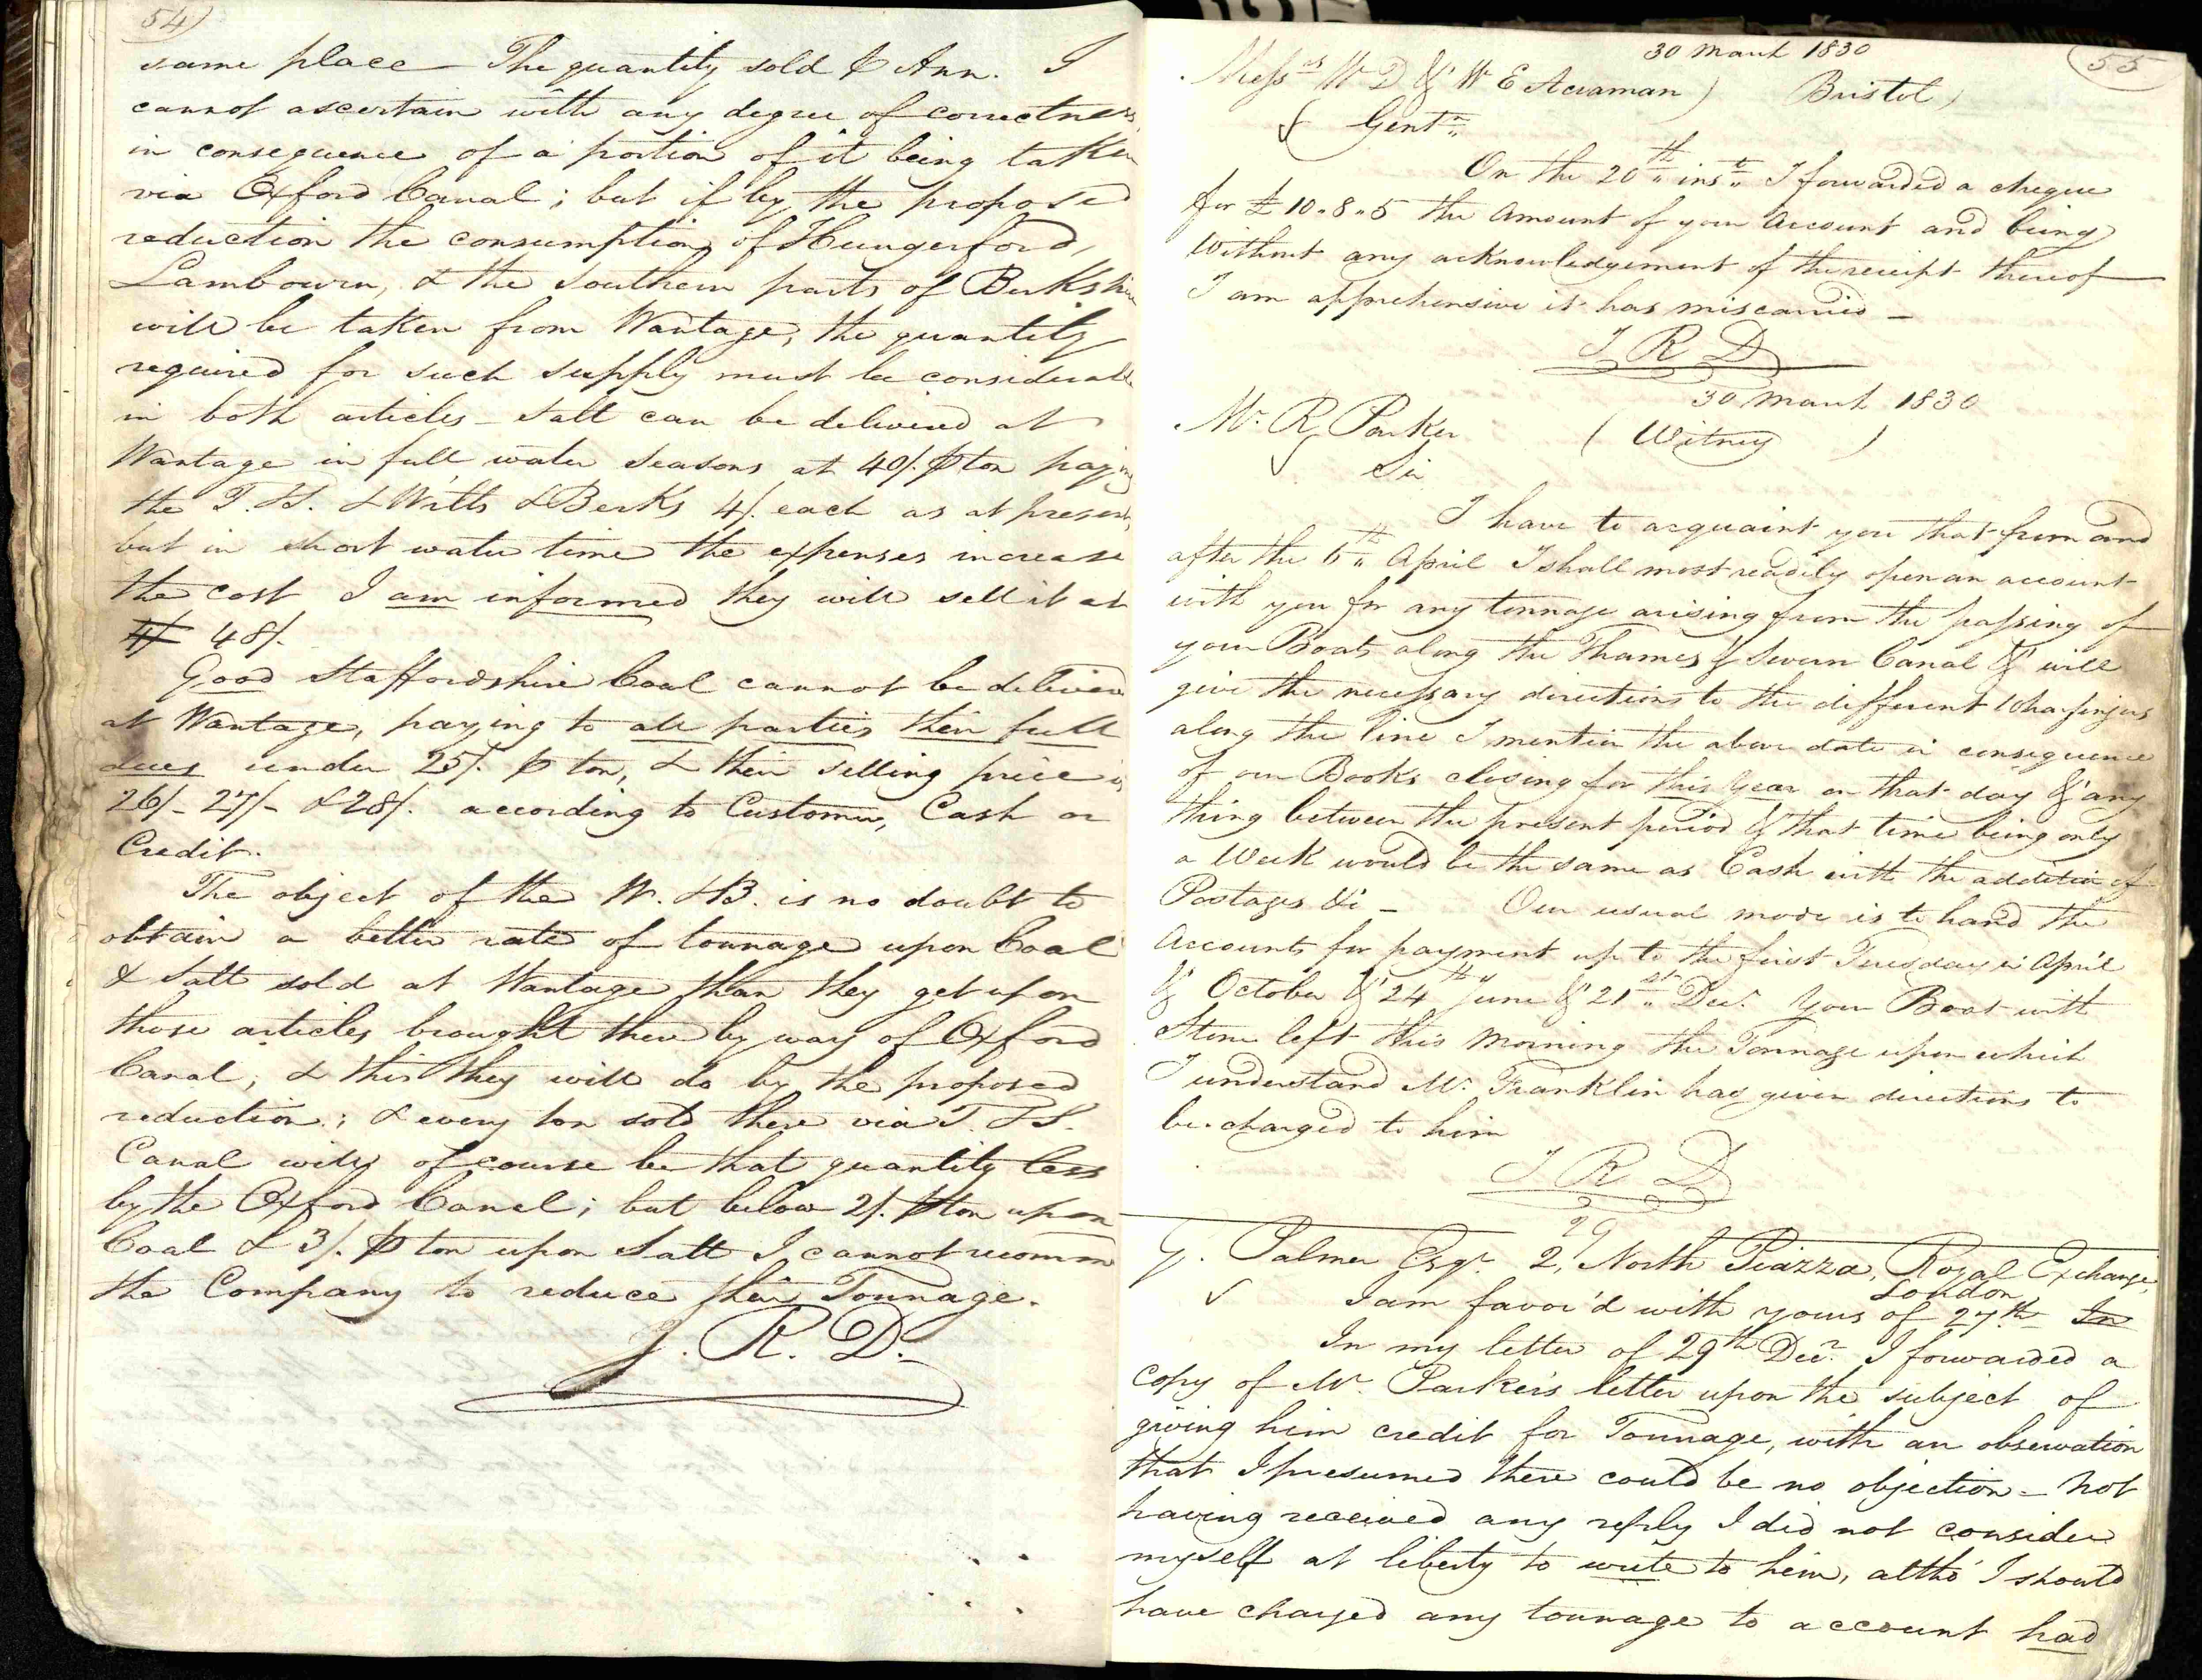 54)
same place — The quantity sold ⅌ Ann. I
cannot ascertain with any degree of correctness,
in consequence of a portion of it being taken
via Oxford Canal; but if by the proposed
reduction the consumption of Hungerford,
Lambourn, & the Southern parts of Berkshire
will be taken from Wantage, the quantity
required for such supply must be considerable
in both articles – Salt can be delivered at
Wantage in full water seasons at 40/. ⅌ ton paying
the T. & S. & Wilts & Berks 4/. each as at present,
but in short water time the expenses increase
the cost I am informed they will sell it at
48/.
Good Staffordshire Coal cannot be delivered
at Wantage, paying to all parties their full
dues under 25/. ⅌ ton, & their selling price is
26/– 27/– & 28/. according to Customer, Cash or
Credit.
The object of the W. & B. is no doubt to
obtain a better rate of tonnage upon Coal
& Salt sold at Wantage than they get upon
those articles brought there by way of Oxford
Canal; & this they will do by the proposed
reduction; & every ton sold there via T. & S.
Canal will of course be that quantity less
by the Oxford Canal; but below 2/. ⅌ ton upon
Coal & 3/. ⅌ ton upon Salt I cannot recomm
the Company to reduce their Tonnage.
J. R. D.
55
30 March 1830
Messrs W D & W E Acraman) Bristol)
Gentn
On the 20th inst I forwarded a cheque
for £10.8.5 the Amount of your Account and being
Without any acknowledgement of the receipt thereof
I am apprehensive it has miscarried –
J R D
30 March 1830
Mr. R. Parker (Witney)
Sir
I have to acquaint you that from and
after the 6th April I shall most readily open an account
with you for any tonnage arising from the passing of
your Boats along the Thames & Severn Canal & will
give the necessary directions to the different Wharfingers
along the line I mention the above date in consequence
of our Books closing for this Year on that day & any
thing between the present period & that time being only
a Week would be the same as Cash with the addition of
Postages &c – Our usual mode is to hand the
Accounts for payment up to the first Tuesday in April
& October & 24th June & 21st Decr. Your Boat with
Stone left this Morning the Tonnage upon which
I understand Mr. Franklin has given directions to
be charged to him
J R D
29
G. Palmer Esqr. 2, North Piazza, Royal Exchange,
London,
I am favor'd with yours of 27th In
In my letter of 29th Decr. I forwarded a
copy of Mr. Parker's letter upon the subject of
giving him credit for Tonnage, with an observation
that I presumed there could be no objection – not
having received any reply I did not consider
myself at liberty to write to him, altho' I should
have charged any tonnage to account had